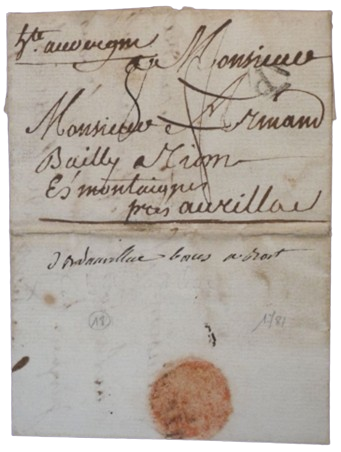 hte auvergne
a Monsieur
Monsieur Armand
Bailly a Riom
Es montaignes
pres aurillac
18
1781